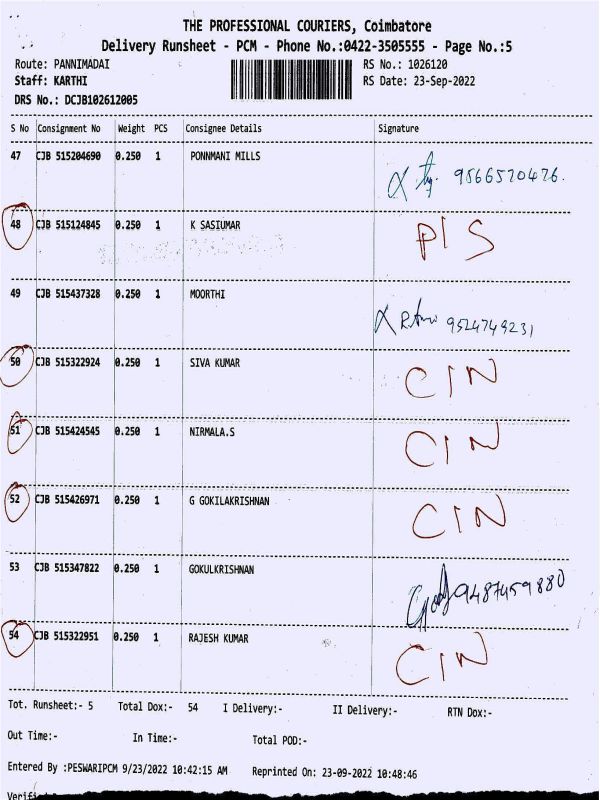 THE PROFESSIONAL COURIERS, Coimbatore
Delivery Runsheet - PCM - Phone No.:0422-3505555 - Page No.:5
Route: PANNIMADAI RS No.: 1026120
Staff: KARTHI RS Date: 23-Sep-2022
DRS No.: DCJB102612005
S No Consignment No Weight PCS Consignee Details Signature
47 CJB 515204690 0.250 1 PONNMANI MILLS
9566570476.
48 CJB 515124845 0.250 1 K SASIUMAR P1S
49 CJB 515437328 0.250 1 MOORTHI
9524749231
50 CJB 515322924 0.250 1 SIVA KUMAR CIN
51 CJB 515424545 0.250 1 NIRMALA.S CIN
52 CJB 515426971 0.250 1 G GOKILAKRISHNAN CIN
53 CJB 515347822 0.250 1 GOKULKRISHNAN 9487459880
54 CJB 515322951 0.250 1 RAJESH KUMAR CIN
Tot. Runsheet:- 5 Total Dox:- 54 I Delivery:- II Delivery:- RTN Dox:-
Out Time:- In Time:- Total POD:-
Entered By :PESWARIPCM 9/23/2022 10:42:15 AM Reprinted On: 23-09-2022 10:48:46